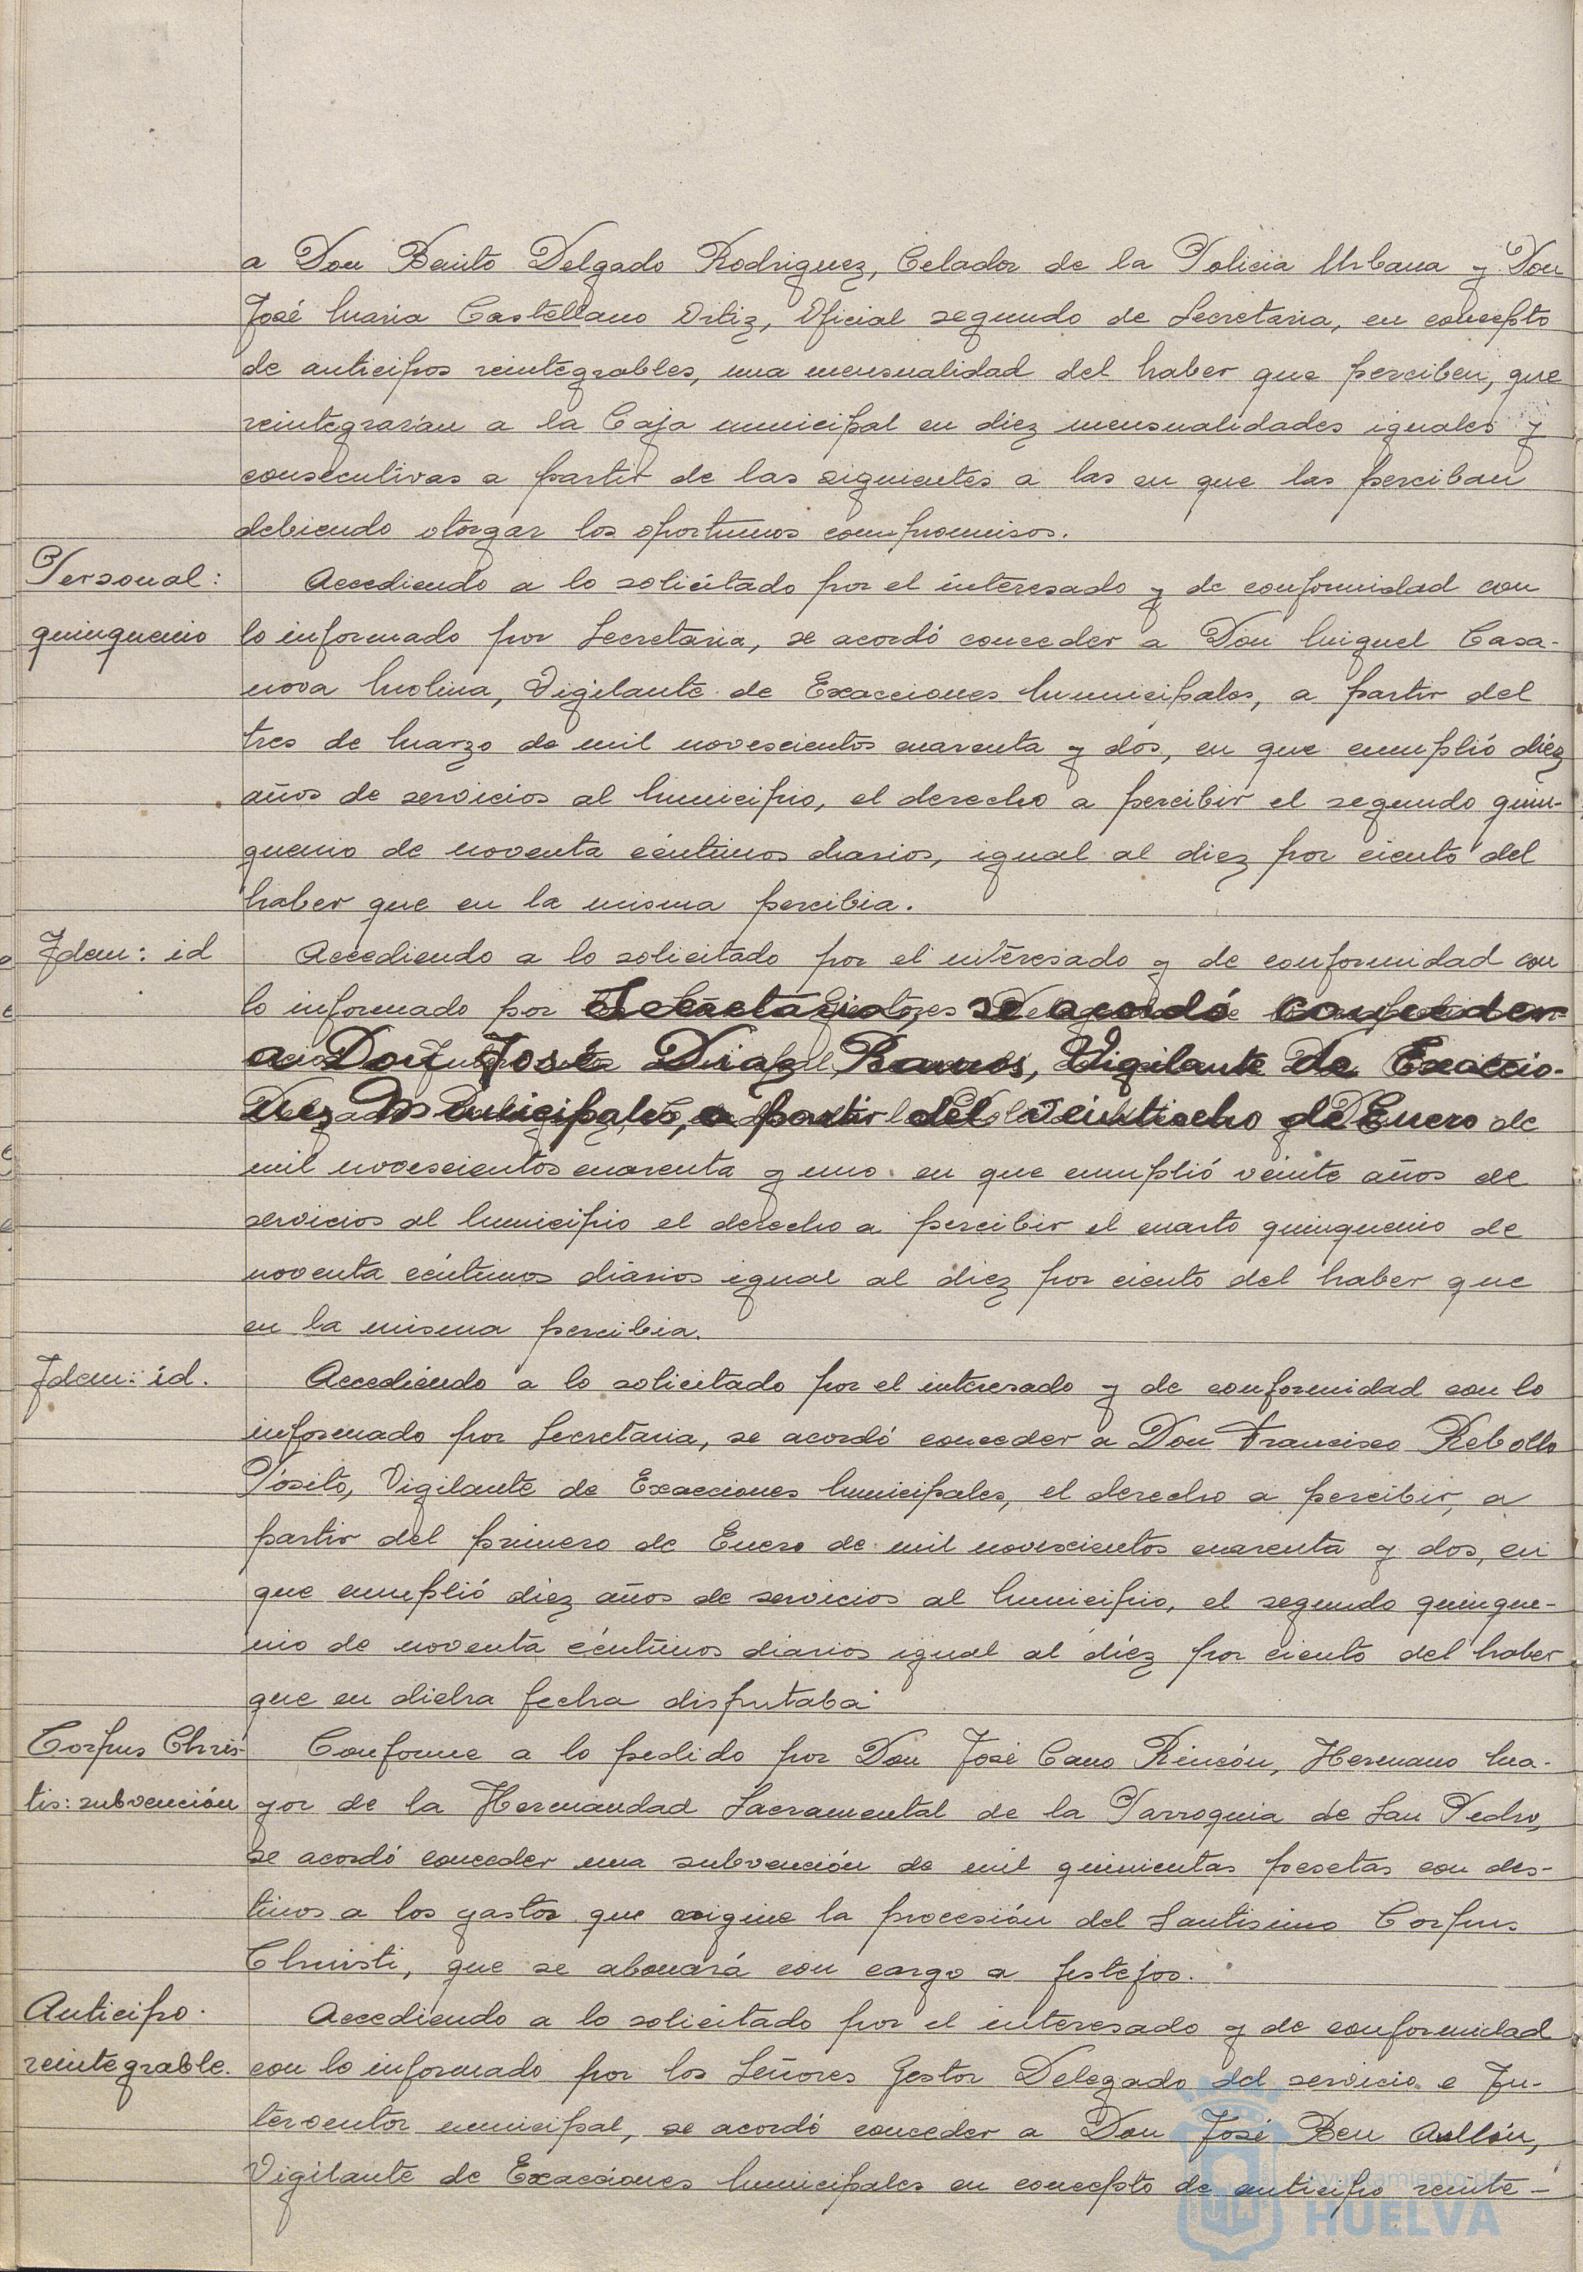 a Don Benito Delgado Rodriguez, Celador de la Policia Urbana y Don
José Maria Castellano Ortiz, Oficial segundo de Secretaria, en concepto
de anticipos reintegrables, una mensualidad del haber que perciben, que
reintegrarán a la Caja municipal en diez mensualidades iguales y
consecutivas a partir de las siguientes a las en que las perciban
debiendo otorgar los oportunos compromisos.
Personal:
quinquenio
Accediendo a lo solicitado por el interesado y de conformidad con
lo informado por Secretaria, se acordó conceder a Don Miguel Casa-
nova Molina, Vigilante de Exacciones Municipales, a partir del
tres de Marzo de mil novescientos cuarenta y dos, en que cumplió diéz
años de servicios al Municipio, el derecho a percibir el segundo quin-
quenio de noventa céntimos diarios, igual al diez por ciento del
haber que en la misma percibia.
Idem: id
Accediendo a lo solicitado por el interesado y de conformidad con
lo informado por Secretaria, se acordó conceder
a Don José Diaz Ramos, Vigilante de Exaccio-
nes Municipales, a partir del veintiocho de Enero de
mil novescientos cuarenta y uno en que cumplió veinte años de
servicios al Municipio el derecho a percibir el cuarto quinquenio de
noventa céntimos diarios igual al diez por ciento del haber que
en la misma percibia.
Idem: id.
Accediendo a lo solicitado por el interesado y de conformidad con lo
informado por Secretaria, se acordó conceder a Don Francisco Rebollo
Pósito, Vigilante de Exacciones Municipales, el derecho a percibir, a
partir del primero de Enero de mil novescientos cuarenta y dos, en
que cumplió diéz años de servicios al Municipio, el segundo quinque-
nio de noventa céntimos diarios igual al diéz por ciento del haber
que en dicha fecha disfrutaba
Corpus Chris-
tis: subvención
Conforme a lo pedido por Don José Cano Rincón, Hermano Ma-
yor de la Hermandad Sacramental de la Parroquia de San Pedro,
se acordó conceder una subvención de mil quinientas pesetas con des-
tinos a los gastos que origine la procesión del Santisimo Corpus
Christi, que se abonará con cargo a festejos.
Anticipo.
reintegrable.
Accediendo a lo solicitado por el interesado y de conformidad
con lo informado por los Señores Gestor Delegado del servicio e In-
terventor municipal, se acordó conceder a Don José Ben Aullón,
Vigilante de Exacciones Municipales en concepto de anticipo reinte-
Ayuntamiento de
HUELVA